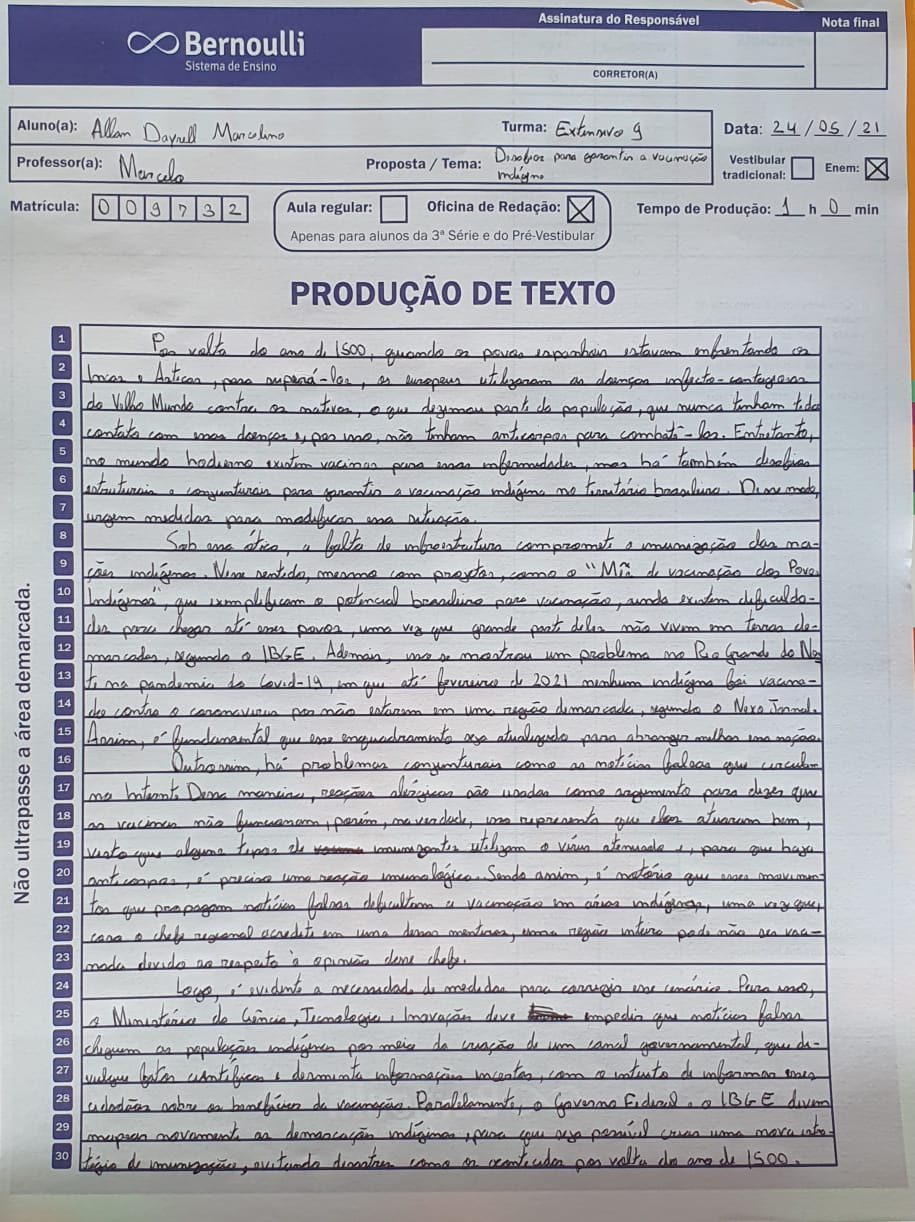 Bernoulli
Sistema de Ensino
Assinatura do Responsável
CORRETOR(A)
Nota final
Aluno(a): Allan Dayrell Marcolino
Turma: Extensivo 9
Data: 24/05/21
Professor(a): Marcelo
Proposta / Tema: Desafios para garantir a vacinação indígena
Vestibular tradicional:
Enem: X
Matrícula: 009732
Aula regular:
Oficina de Redação: X
Apenas para alunos da 3ª Série e do Pré-Vestibular
Tempo de Produção: 1 h 0 min
PRODUÇÃO DE TEXTO
Não ultrapasse a área demarcada.
1 Por volta do ano de 1500, quando os povos espanhois estavam enfrentando os
2 Incas e Astecas, para superá-los, os europeus utilizaram as doenças infecto-contagiosas
3 do Velho Mundo contra os nativos, o que dezimou parte da população, que nunca tinham tido
4 contato com essas doenças e, por isso, não tinham anticorpos para combatê-las. Entretanto,
5 no mundo hodierno existem vacinas para essas enfermidades, mas há também desafios
6 estruturais e conjunturais para garantir a vacinação indígena no território brasileiro. Desse modo,
7 urgem medidas para modificar essa situação.
8 Sob essa ótica, a falta de infraestrutura compromete a imunização das na-
9 ções indígenas. Nesse sentido, mesmo com projetos, como o "Mês de vacinação dos Povos
10 Indígenas", que exemplificam o potencial brasileiro para vacinação, ainda existem dificulda-
11 des para chegar até esses povos, uma vez que grande parte deles não vivem em terras de-
12 marcadas, segundo o IBGE. Ademais, isso se mostrou um problema no Rio Grande do Nor
13 te na pandemia do Covid-19, em que até fevereiro de 2021 nenhum indígena foi vacina-
14 do contra o coronavírus por não estarem em uma região demarcada, segundo o Nexo Jornal.
15 Assim, é fundamental que esse enquadramento seja atualizado para abranger melhor essa nação.
16 Outrossim, há problemas conjunturais como as notícias falsas que circulam
17 na Internet. Dessa maneira, reações alérgicas são usadas como argumento para dizer que
18 as vacinas não funcionam, porém, na verdade, isso representa que elas atuaram bem,
19 visto que alguns tipos de imunizantes utilizam o vírus atenuado e, para que haja
20 anticorpos, é preciso uma reação imunológica. Sendo assim, é notório que esses movimen
21 tos que propagam notícias falsas dificultem a vacinação em áreas indígenas, uma vez que,
22 caso o chefe regional acredite em uma dessas mentiras, uma região inteira pode não ser vaci-
23 nada devido ao respeito à opinião desse chefe.
24 Logo, é evidente a necessidade de medidas para corrigir esse cenário. Para isso,
25 o Ministério da Ciência, Tecnologia e Inovação deve impedir que notícias falsas
26 cheguem as população indígenas por meio da criação de um canal governamental, que di-
27 vulgue fatos científicos e desminta informações incertas, com o intuito de informar esses
28 cidadãos sobre os benefícios da vacinação. Paralelamente, o Governo Federal e o IBGE devem
29 mapear novamente as demarcação indígenas, para que seja possível criar uma nova estra-
30 tégia de imunização, evitando desastres como os acontecidos por volta do ano de 1500.